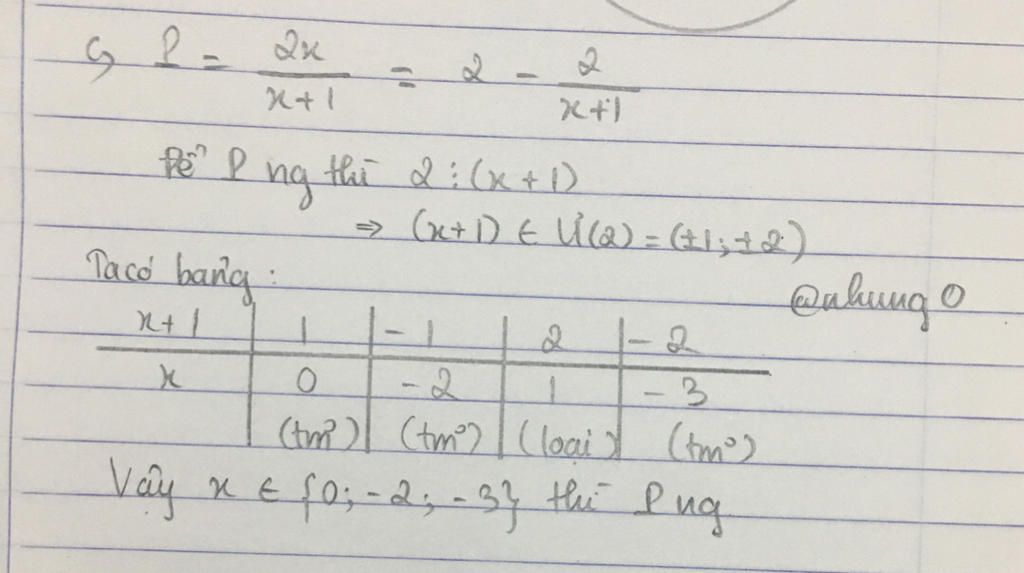 c, P = 2x/(x+1) = 2 - 2/(x+1)
Để P ng thì 2 ⋮ (x+1)
⇒ (x+1) ∈ Ư(2) = (±1; ±2)
Ta có bảng:
@nhung0
x+1 | 1 | -1 | 2 | -2
x | 0 | -2 | 1 | -3
(tm) | (tm) | (loại) | (tm)
Vậy x ∈ {0; -2; -3} thì P ng